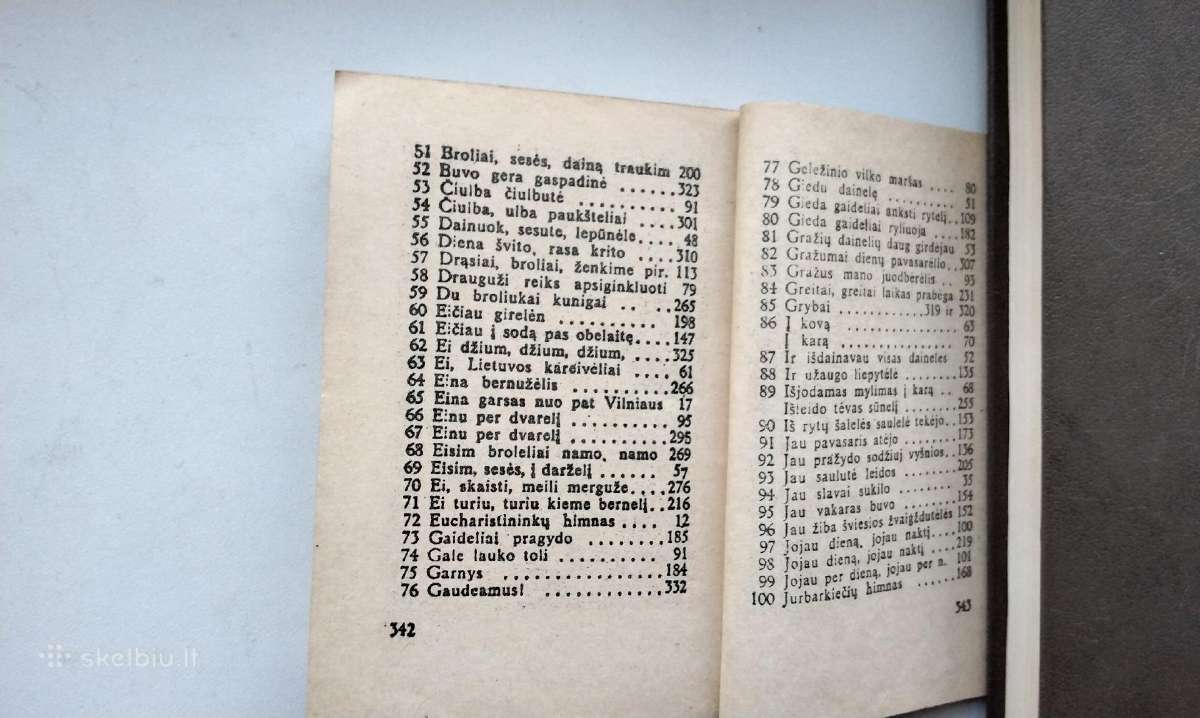 51 Broliai, sesės, dainą traukim 200
52 Buvo gera gaspadinė ......323
53 Čiulba čiulbutė ..........91
54 Čiulba, ulba paukšteliai ....301
55 Dainuok, sesute, lepūnėle....48
56 Diena švito, rasa krito ....310
57 Drąsiai, broliai, ženkime pir. 113
58 Drauguži reiks apsiginkluoti 79
59 Du broliukai kunigai .. ..265
60 Eičiau girelėn .......... 198
61 Eičiau į sodą pas obelaitę....147
62 Ei džium, džium, džium, ....325
63 Ei, Lietuvos kareivėliai .... 61
64 Eina bernužėlis ..........266
65 Eina garsas nuo pat Vilniaus 17
66 Einu per dvarelį .......... 95
67 Einu per dvarelį ..........295
68 Eisim broleliai namo, namo 269
69 Eisim, sesės, į darželį ...... 57
70 Ei, skaisti, meili merguže....276
71 Ei turiu, turiu kieme bernelį..216
72 Eucharistininkų himnas .... 12
73 Gaideliai pragydo ........185
74 Gale lauko toli .......... 91
75 Garnys ................184
76 Gaudeamus! ............332
342
77 Geležinio vilko maršas .... 80
78 Giedu dainelę .......... 51
79 Gieda gaideliai anksti rytelį..109
80 Gieda gaideliai ryliuoja ....182
81 Gražių dainelių daug girdėjau 53
82 Gražumai dienų pavasarėlio..307
83 Gražus mano juodbėrėlis .. 93
84 Greitai, greitai laikas prabėga 231
85 Grybai ............319 ir 320
86 Į kovą .............. 63
Į karą .............. 70
87 Ir išdainavau visas daineles 52
88 Ir užaugo liepytėlė ......135
89 Išjodamas mylimas į karą .. 68
Išleido tėvas sūnelį ........255
90 Iš rytų šalelės saulelė tekėjo..153
91 Jau pavasaris atėjo ........173
92 Jau pražydo sodžiuj vyšnios..136
93 Jau saulutė leidos ........205
94 Jau slavai sukilo .......... 35
95 Jau vakaras buvo ........154
96 Jau žiba šviesios žvaigždutėlės 152
97 Jojau dieną, jojau naktį....100
98 Jojau dieną, jojau naktį ....219
99 Jojau per dieną, jojau per n. 101
100 Jurbarkiečių himnas ......168
343
skelbiu.lt